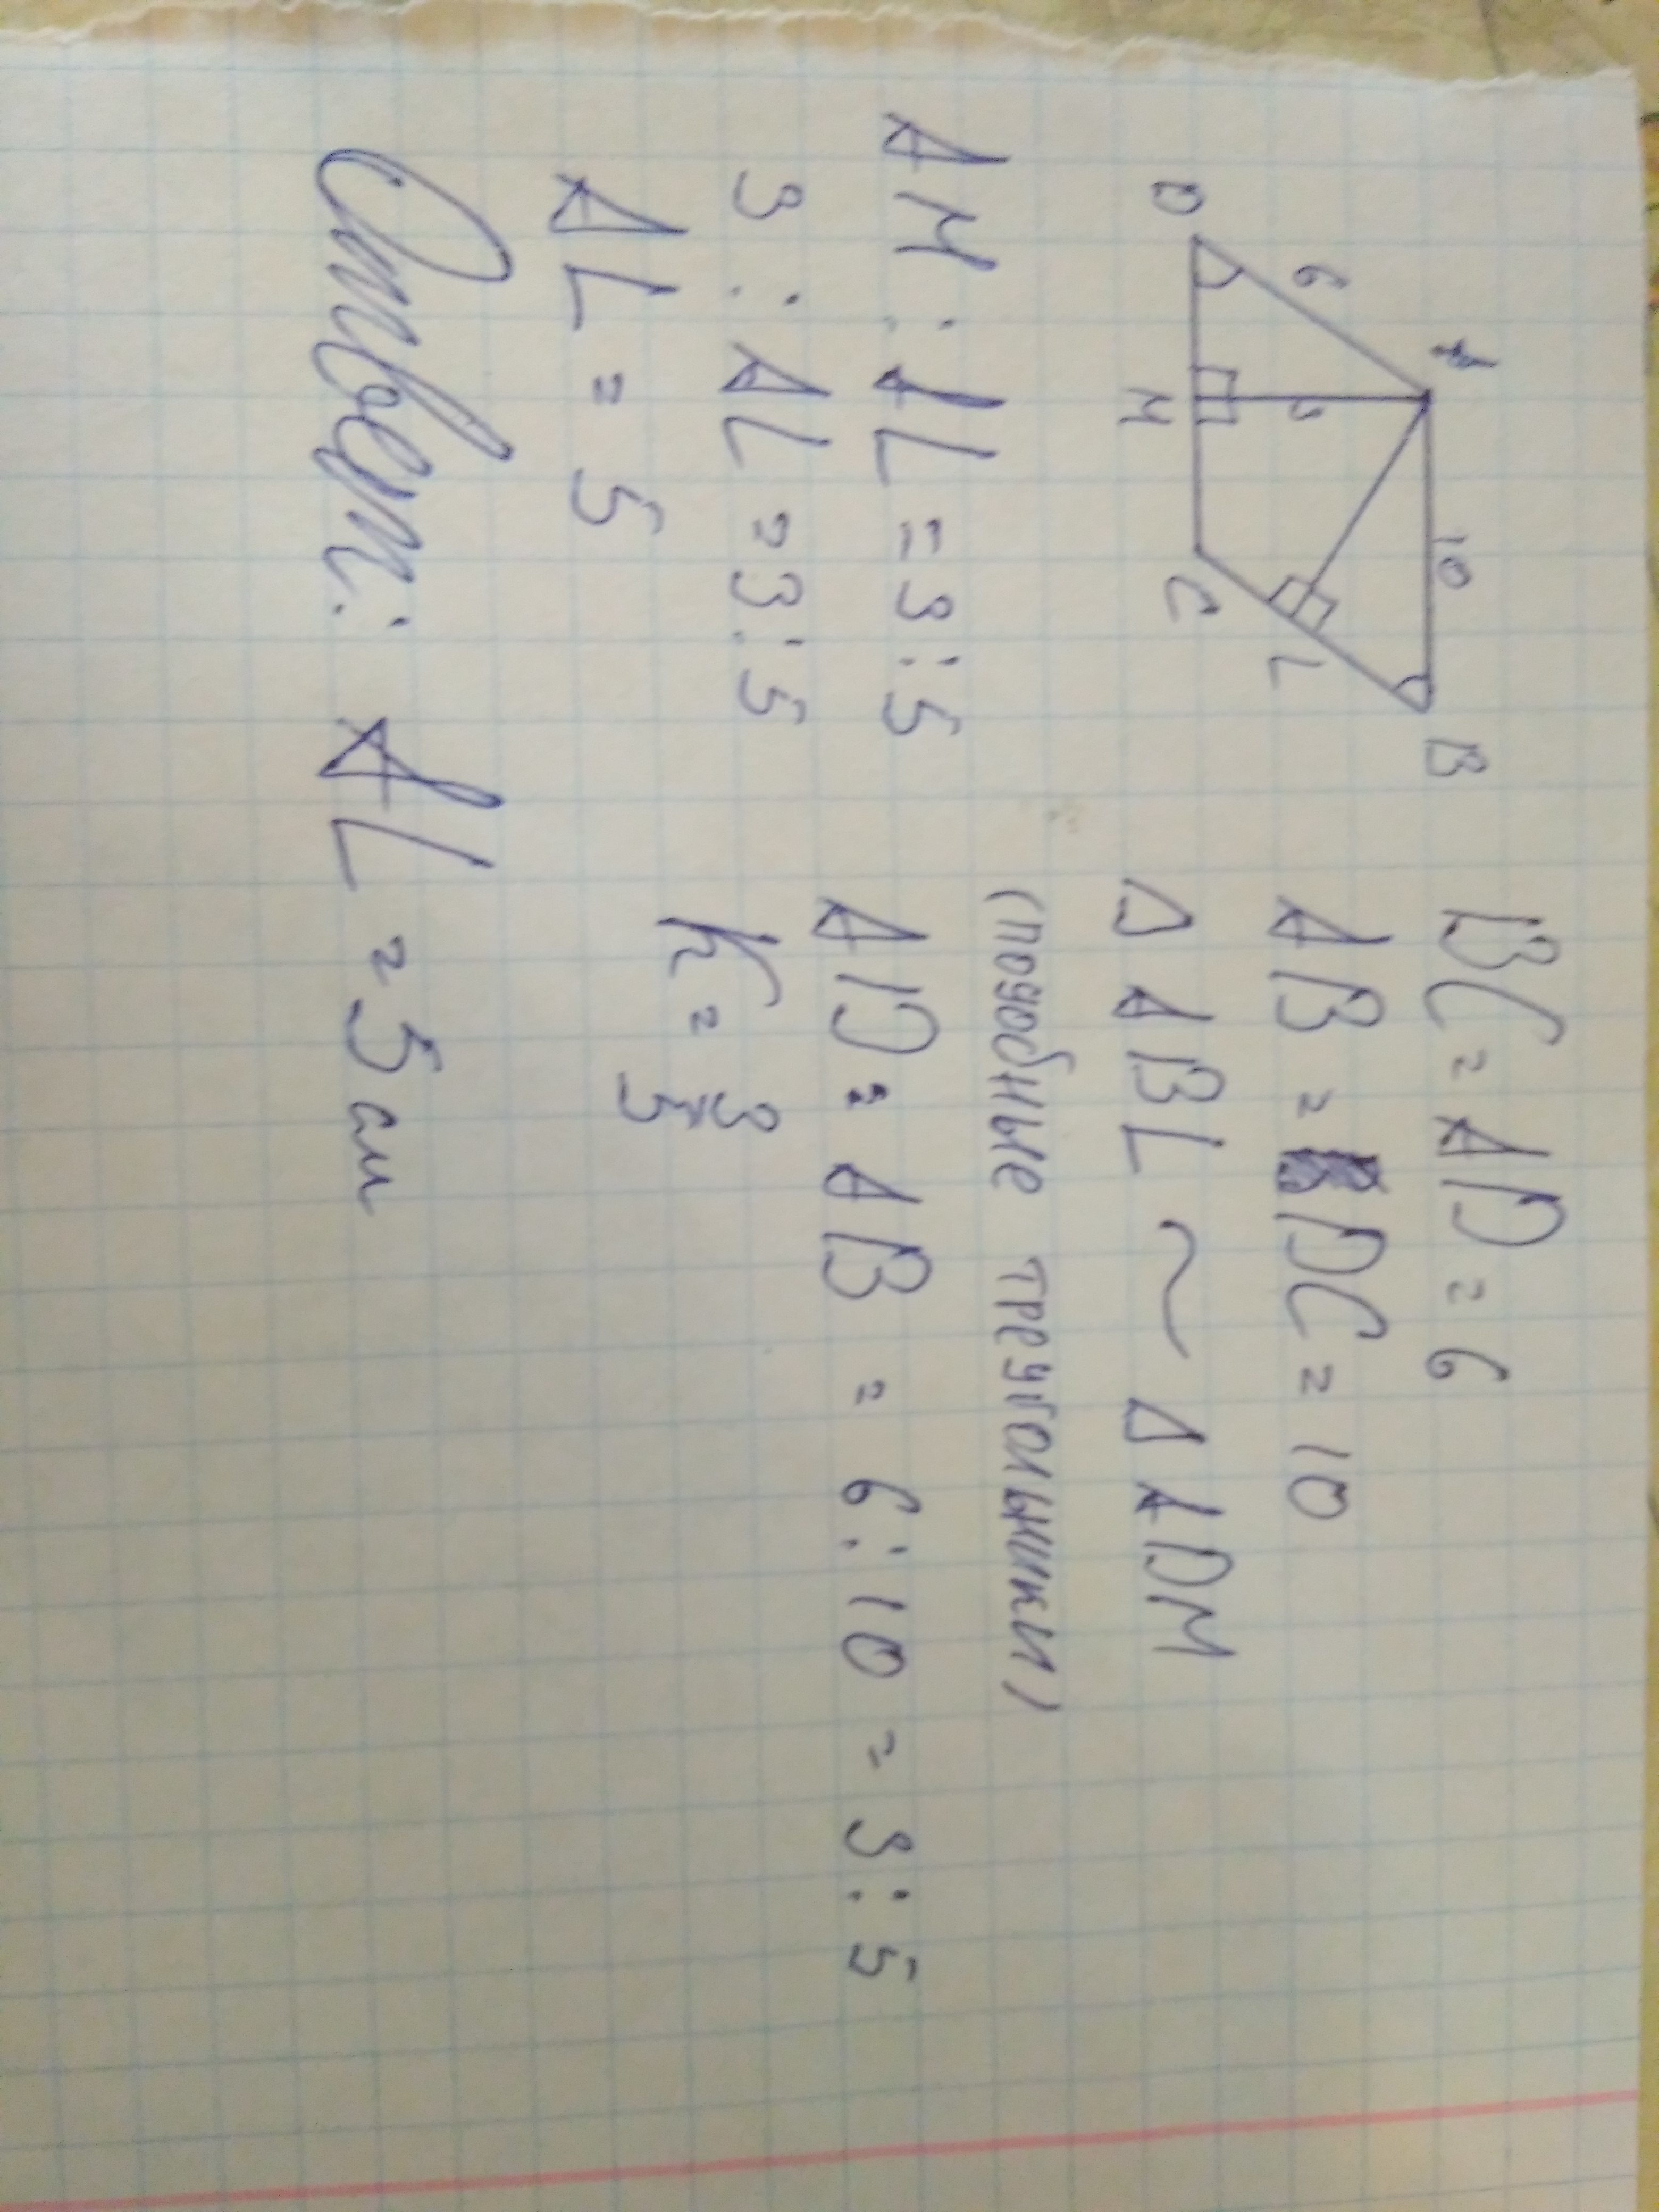 A
B
10
6
3
D
M
C
L
BC = AD = 6
AB = DC = 10
Δ ABL ~ Δ ADM
(подобные треугольники)
AD : AB = 6 : 10 = 3 : 5
k = 3/5
AM : AL = 3 : 5
3 : AL = 3 : 5
AL = 5
Ответ: AL = 5 см